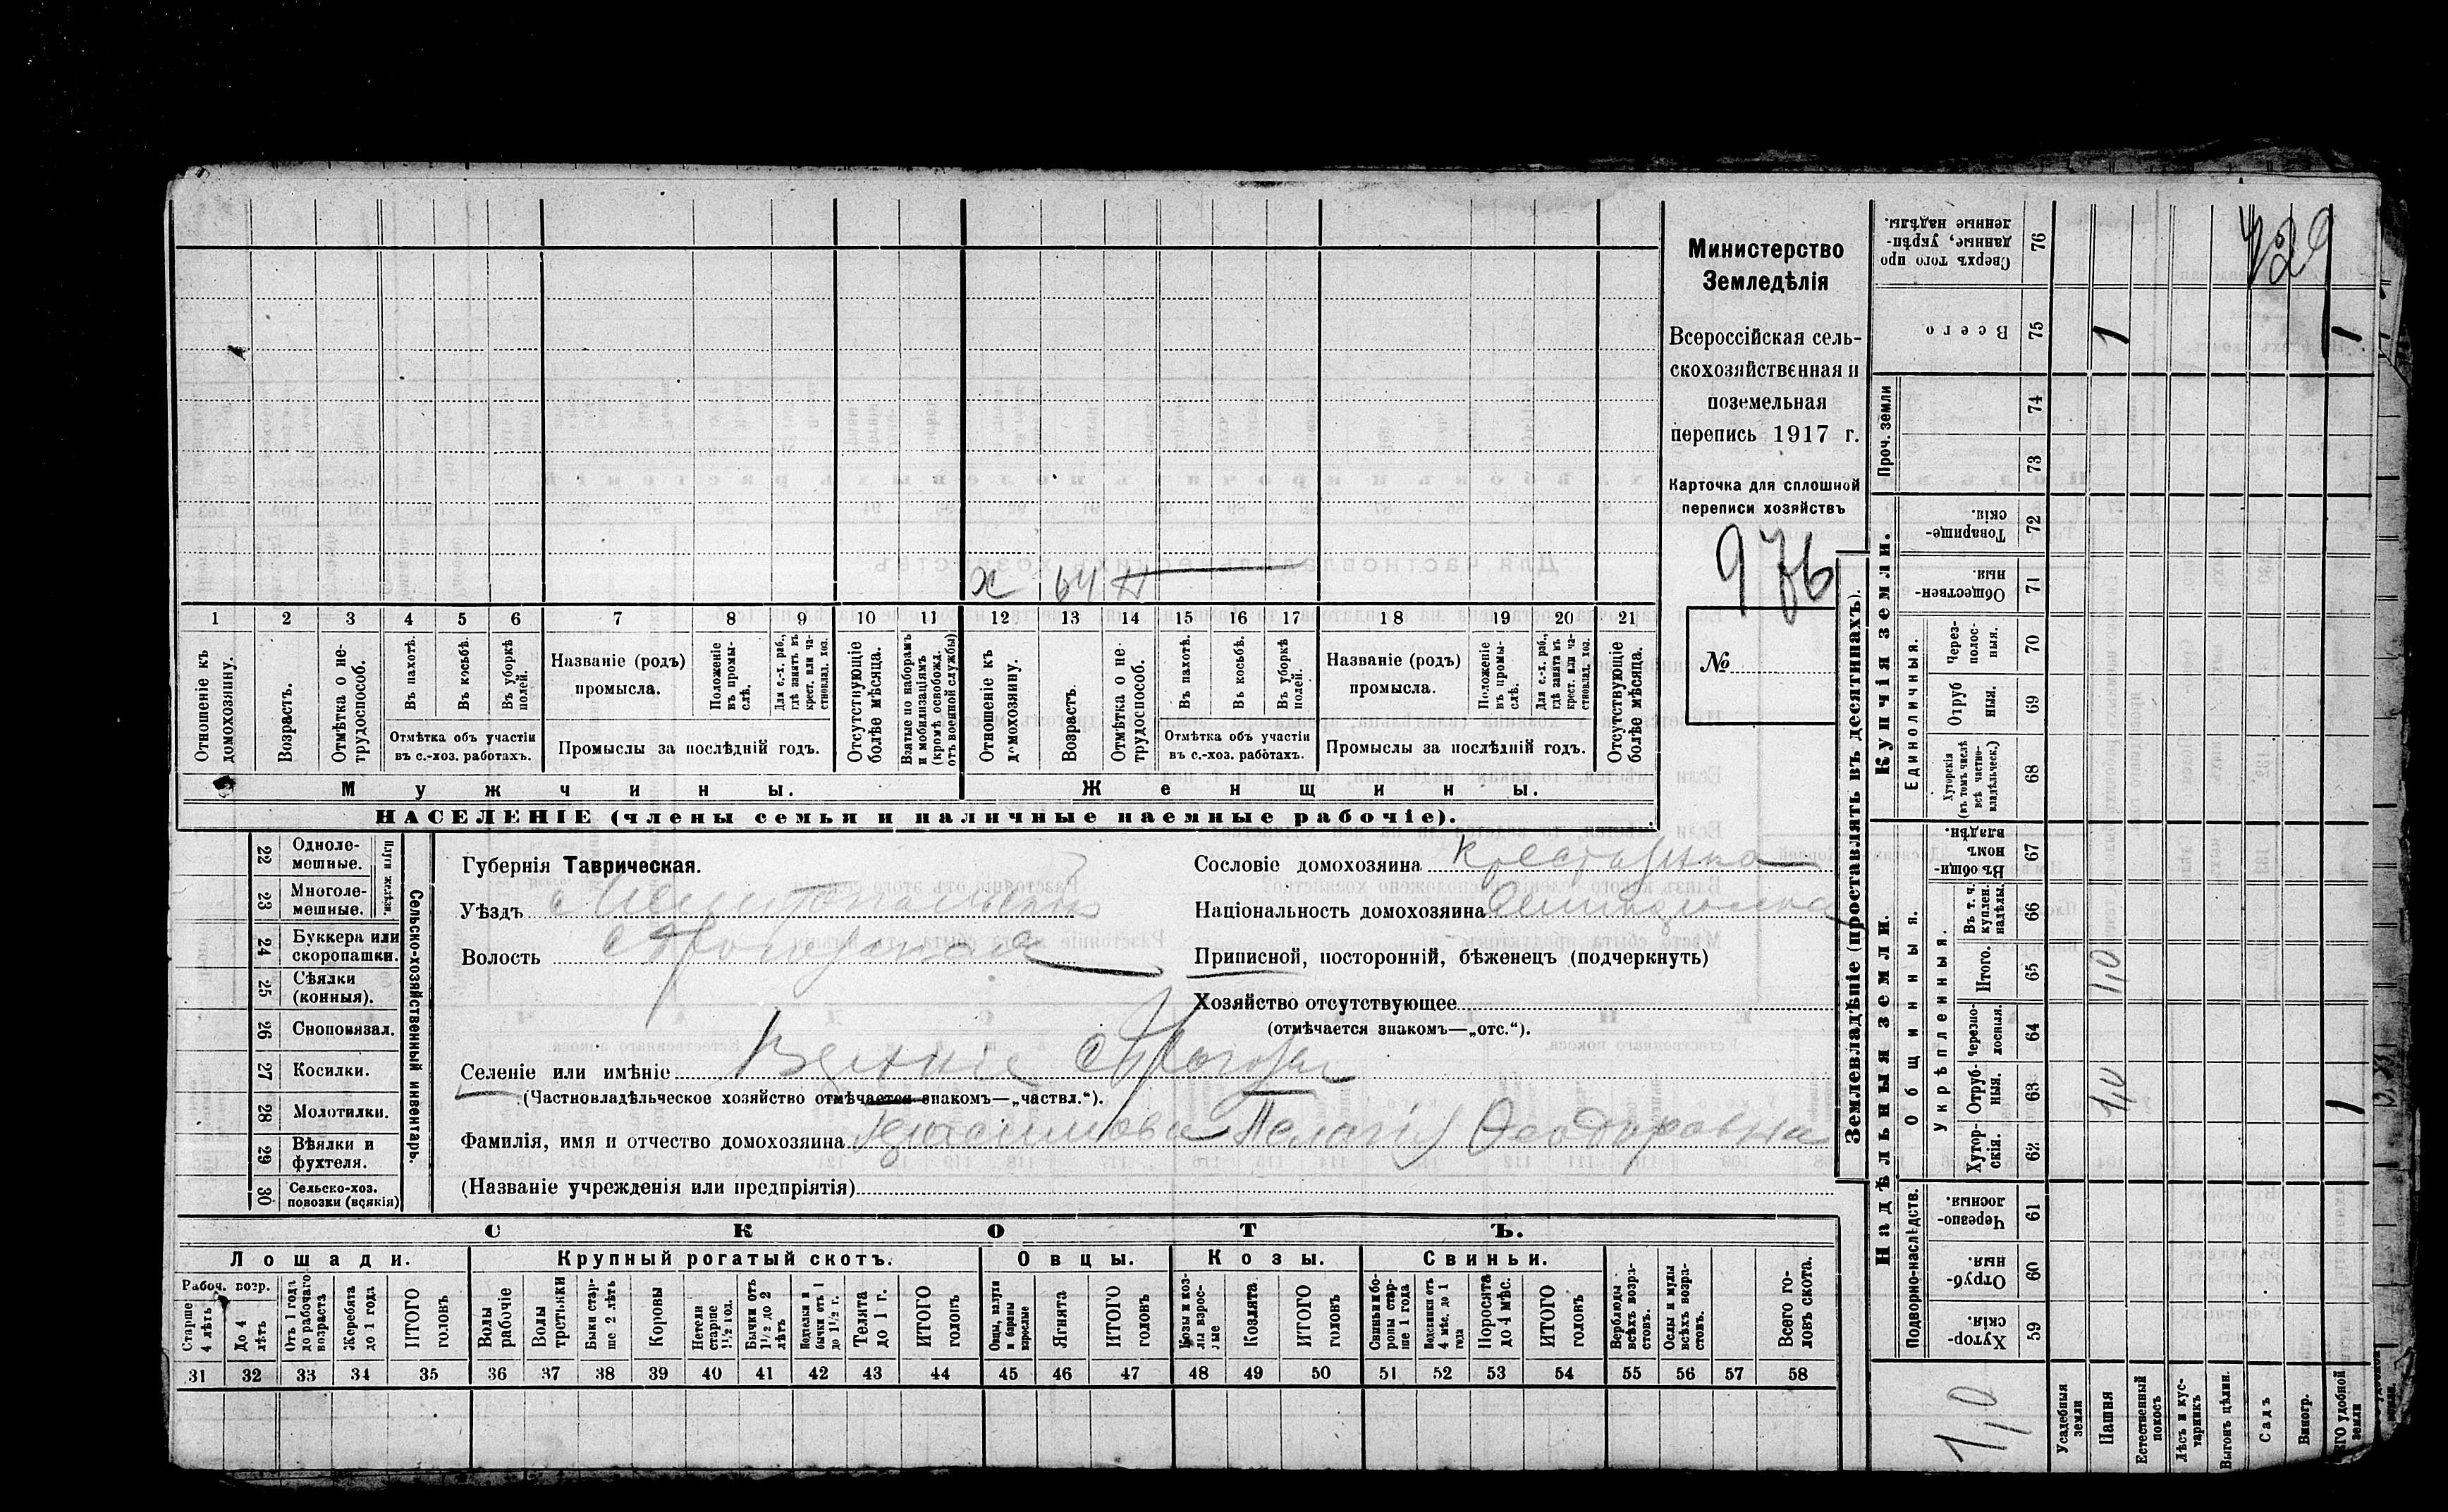 х 64 н
1 2 3 4 5 6 7 8 9 10 11 12 13 14 15 16 17 18 19 20 21
Отношеніе къ домохозяину.
Возрастъ.
Отмѣтка о нетрудоспособ.
Въ пахотѣ.
Въ косьбѣ.
Въ уборкѣ полей.
Отмѣтка объ участіи
въ с.-хоз. работахъ.
Названіе (родъ)
промысла.
Положеніе въ промыслѣ.
Для с.-х. раб., гдѣ занятъ въ крест. или частновлад. хоз.
Промыслы за послѣдній годъ.
Отсутствующіе болѣе мѣсяца.
Взятые по наборамъ и мобилизаціямъ (кромѣ освобожд. отъ военной службы)
Отношеніе къ домохозяину.
Возрастъ.
Отмѣтка о нетрудоспособ.
Въ пахотѣ.
Въ косьбѣ.
Въ уборкѣ полей.
Отмѣтка объ участіи
въ с.-хоз. работахъ.
Названіе (родъ)
промысла.
Положеніе въ промыслѣ.
Для с.-х. раб., гдѣ занятъ въ крест. или частновлад. хоз.
Промыслы за послѣдній годъ.
Отсутствующіе болѣе мѣсяца.
Мужчины.
Женщины.
НАСЕЛЕНІЕ (члены семьи и наличные наемные рабочіе).
Министерство
Земледѣлія
Всероссійская сель-
скохозяйственная и
поземельная
перепись 1917 г.
Карточка для сплошной
переписи хозяйствъ
976
№
22 Одноле-
мешные.
23 Многоле-
мешные.
Плуги желѣзн.
24 Буккера или
скоропашки.
25 Сѣялки
(конныя).
26 Сноповязал.
27 Косилки.
28 Молотилки.
29 Вѣялки и
фухтеля.
30 Сельско-хоз.
повозки (всякія)
Сельско-хозяйственный инвентарь.
Губернія Таврическая.
Уѣздъ Мелитопольскій
Волость
Селеніе или имѣніе
(Частновладѣльческое хозяйство отмѣчается знакомъ—„частвл.“).
Фамилія, имя и отчество домохозяина Герасимова Пелагія Ѳеодоровна
(Названіе учрежденія или предпріятія)
Сословіе домохозяина крестьянка
Національность домохозяина
Приписной, посторонній, бѣженец (подчеркнуть)
Хозяйство отсутствующее
(отмѣчается знакомъ—„отс.“).
СКОТЪ.
Лошади. Крупный рогатый скотъ. Овцы. Козы. Свиньи.
Рабоч. возр.
Старше 4 лѣтъ
До 4 лѣтъ
Отъ 1 года до рабочаго возраста
Жеребята до 1 года
ИТОГО головъ
Волы рабочіе
Волы третьяки
Быки старше 2 лѣтъ
Коровы
Нетели старше 1½ год.
Бычки отъ 1½ до 2 лѣтъ
Подтелки и бычки отъ 1 до 1½ г.
Телята до 1 г.
ИТОГО головъ
Овцы, валухи и бараны взрослые
Ягнята
ИТОГО головъ
Козы и козлы взрослые
Козлята
ИТОГО головъ
Свиньи и бороны старше 1 года
Подсвинки отъ 4 мѣс. до 1 года
Поросята до 4 мѣс.
ИТОГО головъ
Верблюды всѣхъ возрастовъ.
Ослы и мулы всѣхъ возрастовъ.
Всего головъ скота.
31 32 33 34 35 36 37 38 39 40 41 42 43 44 45 46 47 48 49 50 51 52 53 54 55 56 57 58
Землевладѣніе (проставлять въ десятинахъ).
Надѣльныя земли.
Подворно-наслѣдств.
Хутор-
скія. 59
Отруб-
ныя. 60
Черезпо-
лосныя. 61
Общинныя.
Укрѣпленныя.
Хутор-
скія. 62
Отруб-
ныя. 63
Черезпо-
лосныя. 64
Итого. 65
Въ т. ч. куплен. надѣлы. 66
Въ общи-
номъ
владѣн. 67
Купчія земли.
Единоличныя.
Хуторскія (въ томъ числѣ всѣ частновладѣльческ.) 68
Отруб
ныя. 69
Через-
полос-
ныя. 70
Обществен-
ныя. 71
Товарище-
скія. 72
Проч. земли
73
74
Всего 75
Сверхъ того про
данные, укрѣп-
ленные надѣлы. 76
Усадебныя земли
Пашня
Естественный покосъ
Лѣсъ и кустарникъ
Выгонъ цѣлин.
Садъ
Виногр.
удобной земли
1,0
1,0
1,0
1
1
1